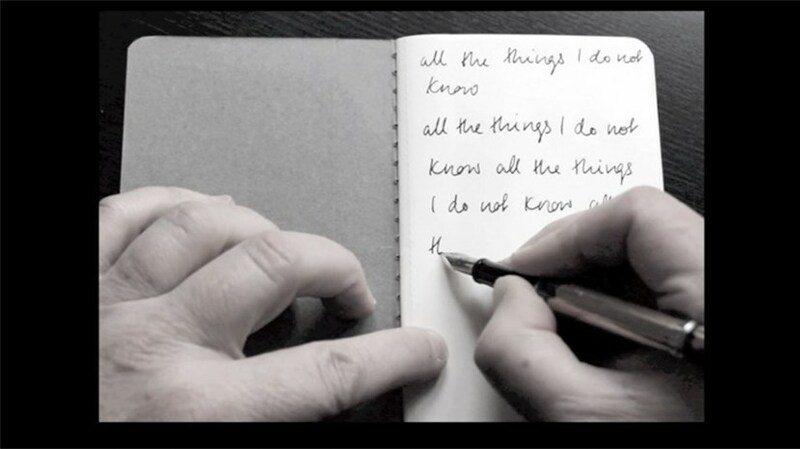 all the things I do not
know
all the things I do not
know all the things
I do not know
th